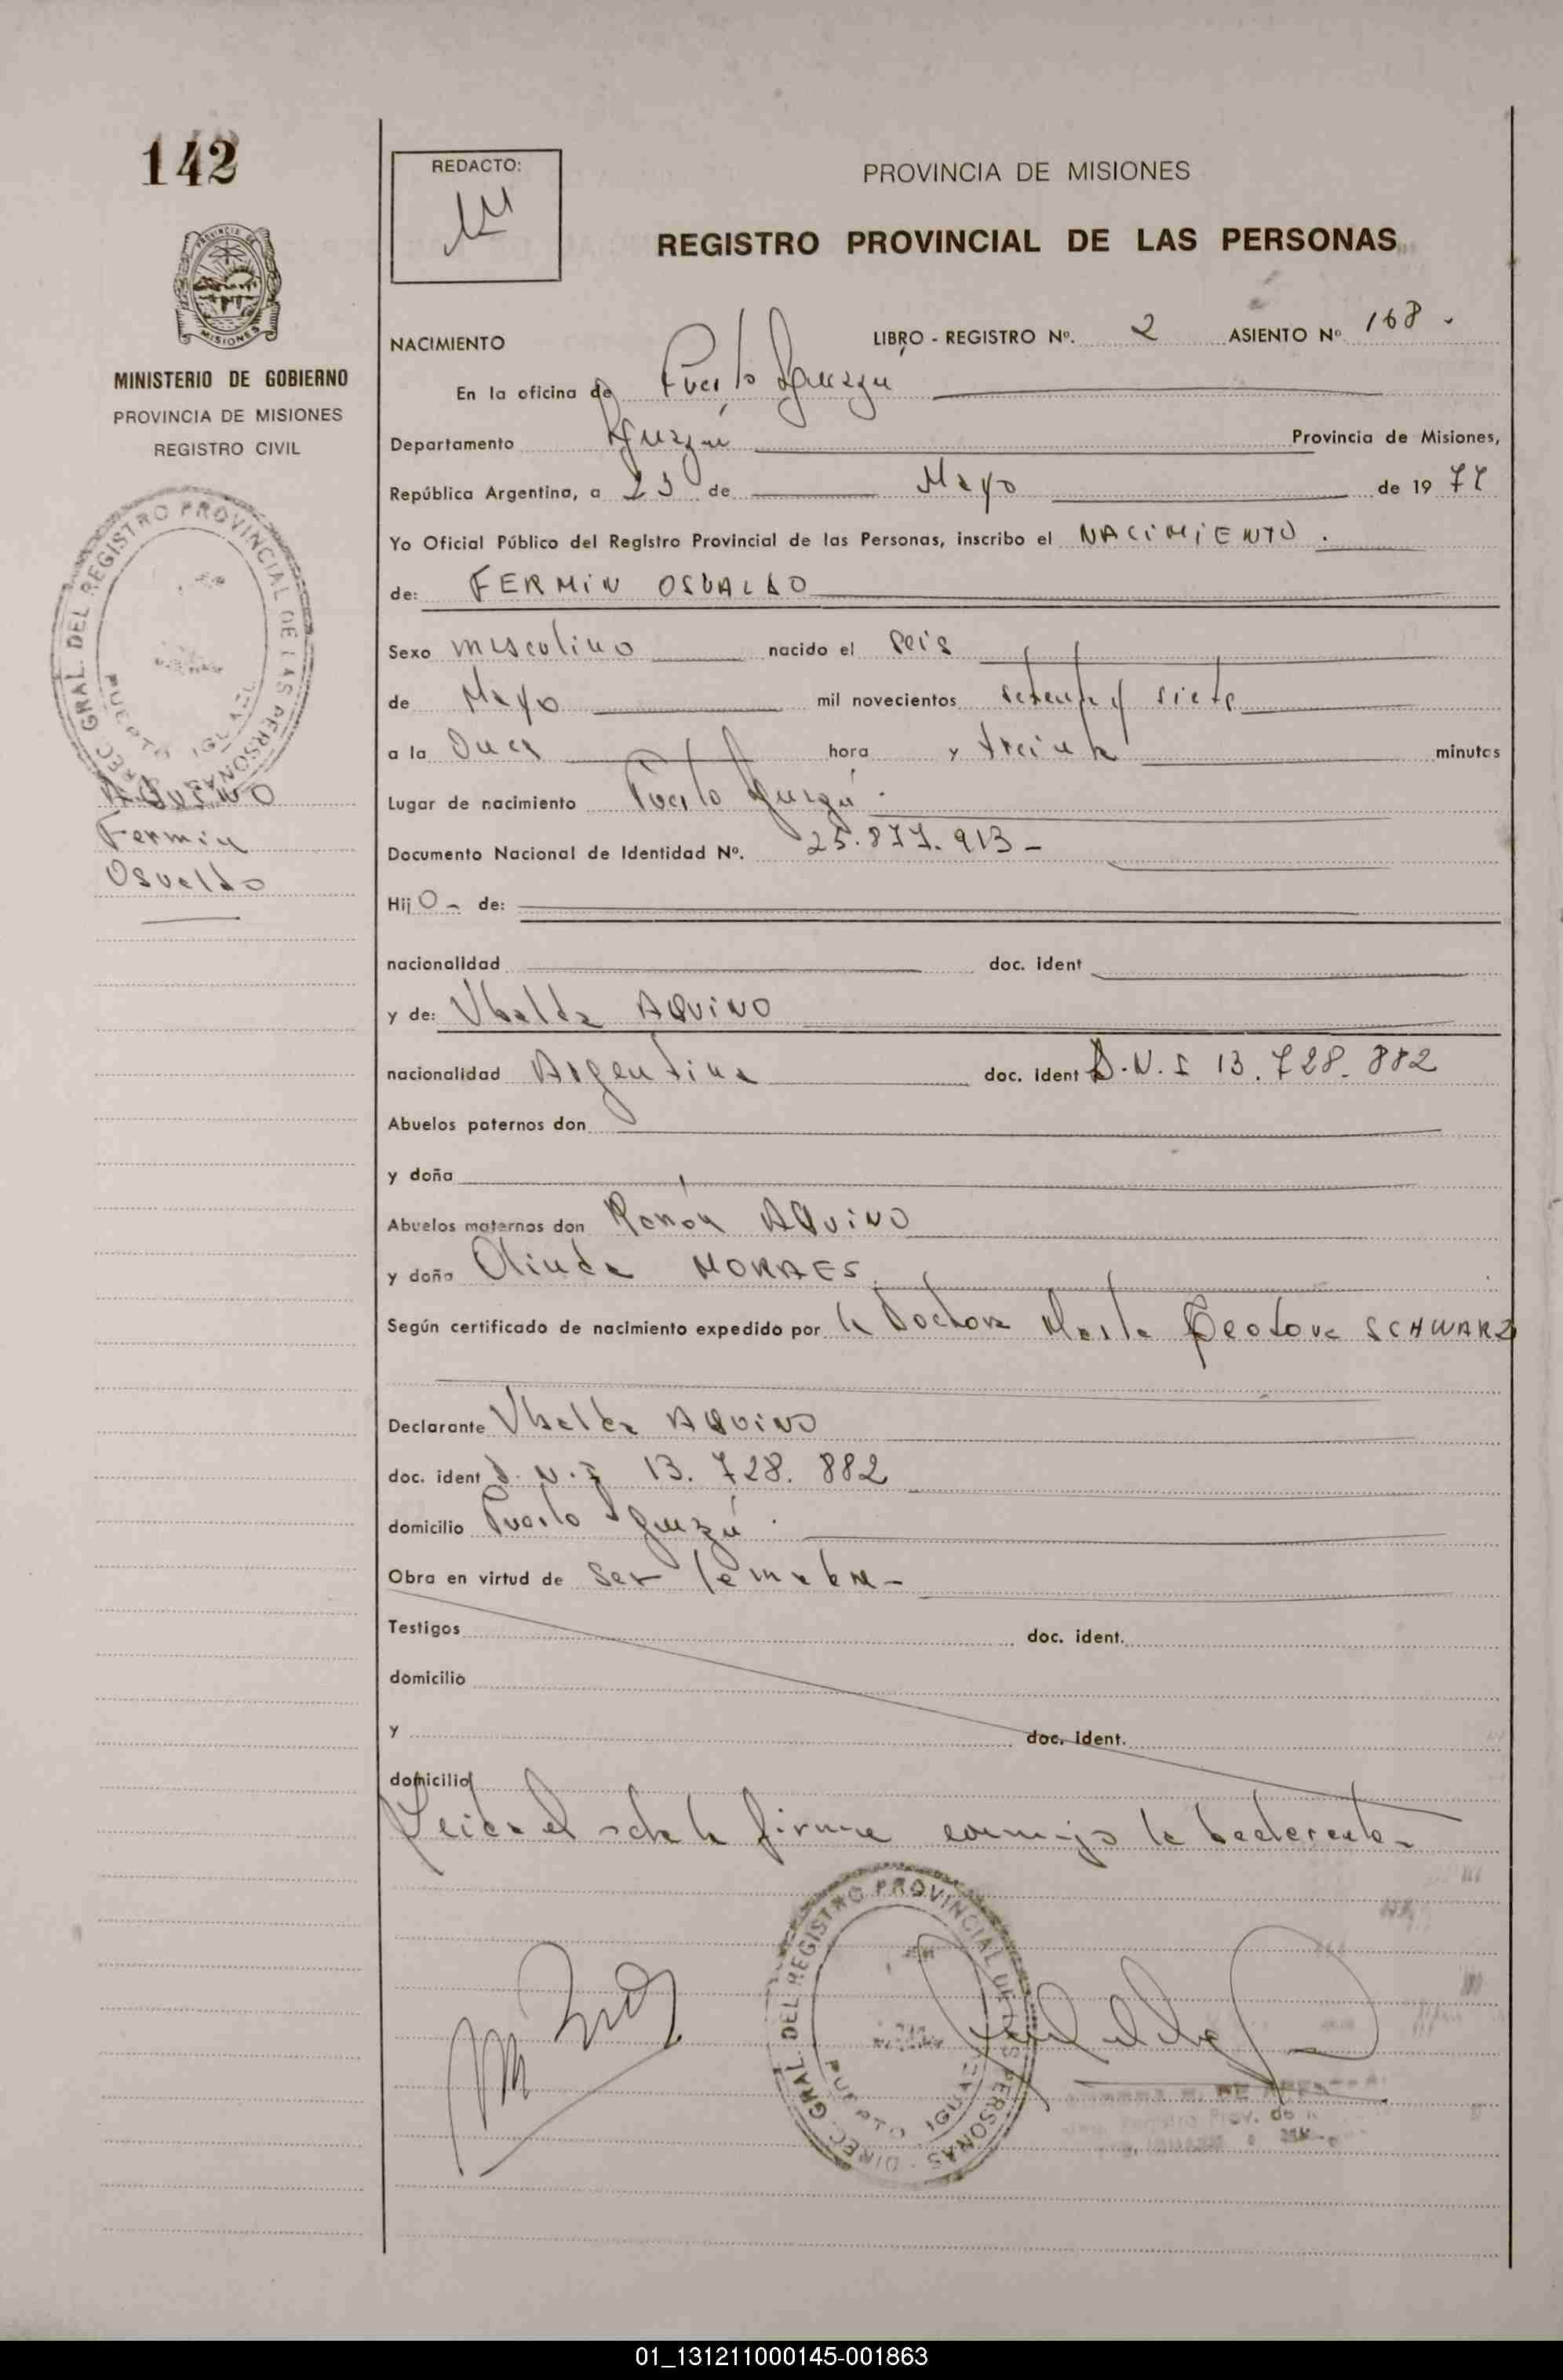 142
REDACTO:
PROVINCIA DE MISIONES
REGISTRO PROVINCIAL DE LAS PERSONAS
MISIONES
MINISTERIO DE GOBIERNO
PROVINCIA DE MISIONES
REGISTRO CIVIL
DIREC. GRAL. DEL REGISTRO PROVINCIAL DE LAS PERSONAS
PUERTO IGUAZU
AQUINO
Fermin
Osvaldo
NACIMIENTO LIBRO - REGISTRO Nº. 2 ASIENTO Nº 168.
En la oficina de Puerto Iguazú
Departamento Iguazú Provincia de Misiones,
República Argentina, a 23 de Mayo de 1977
Yo Oficial Público del Registro Provincial de las Personas, inscribo el NACIMIENTO.
de: FERMIN OSVALDO
Sexo masculino nacido el seis
de Mayo mil novecientos setenta y siete
a la once hora y treinta minutos
Lugar de nacimiento Puerto Iguazú.
Documento Nacional de Identidad Nº. 25.877.913-
Hij O- de:
nacionalidad doc. ident
y de: Ubalda AQUINO
nacionalidad Argentina doc. ident D.N.I 13.728.882
Abuelos paternos don
y doña
Abuelos maternos don Ramón AQUINO
y doña Olinda MORAES
Según certificado de nacimiento expedido por la Doctora Marta SCHWARZ
Declarante Ubalda AQUINO
doc. ident D.N.I 13.728.882
domicilio Puerto Iguazú.
Obra en virtud de ser la madre-
Testigos doc. ident.
domicilio
y doc. ident.
domicilio
Leida el acta la firma conmigo la declarante-
DIREC. GRAL. DEL REGISTRO PROVINCIAL DE LAS PERSONAS
PUERTO IGUAZU
01_131211000145-001863